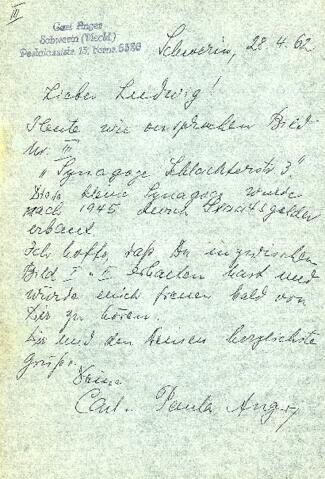 III
Carl Anger
Schwerin (Meckl.)
Schwerin, 28.4.62
Lieber Ludwig!
Heute wie versprochen Bild
Nr. III
"Synagoge Schlachterstr 3."
Diese kleine Synagoge wurde
nach 1945 durch Staatsgelder
erbaut
Ich hoffe, daß Du inzwischen
Bild I u. II erhalten hast und
würde mich freuen bald von
Dir zu hören.
Dir und den Deinen herzlichste
Grüße.
Deine
Carl u. Paula Anger